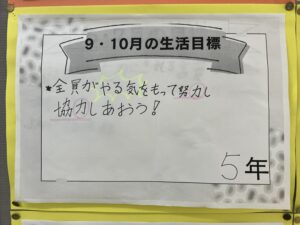 9・10月の生活目標
★全員がやる気をもって努力し
協力しあおう!
5年